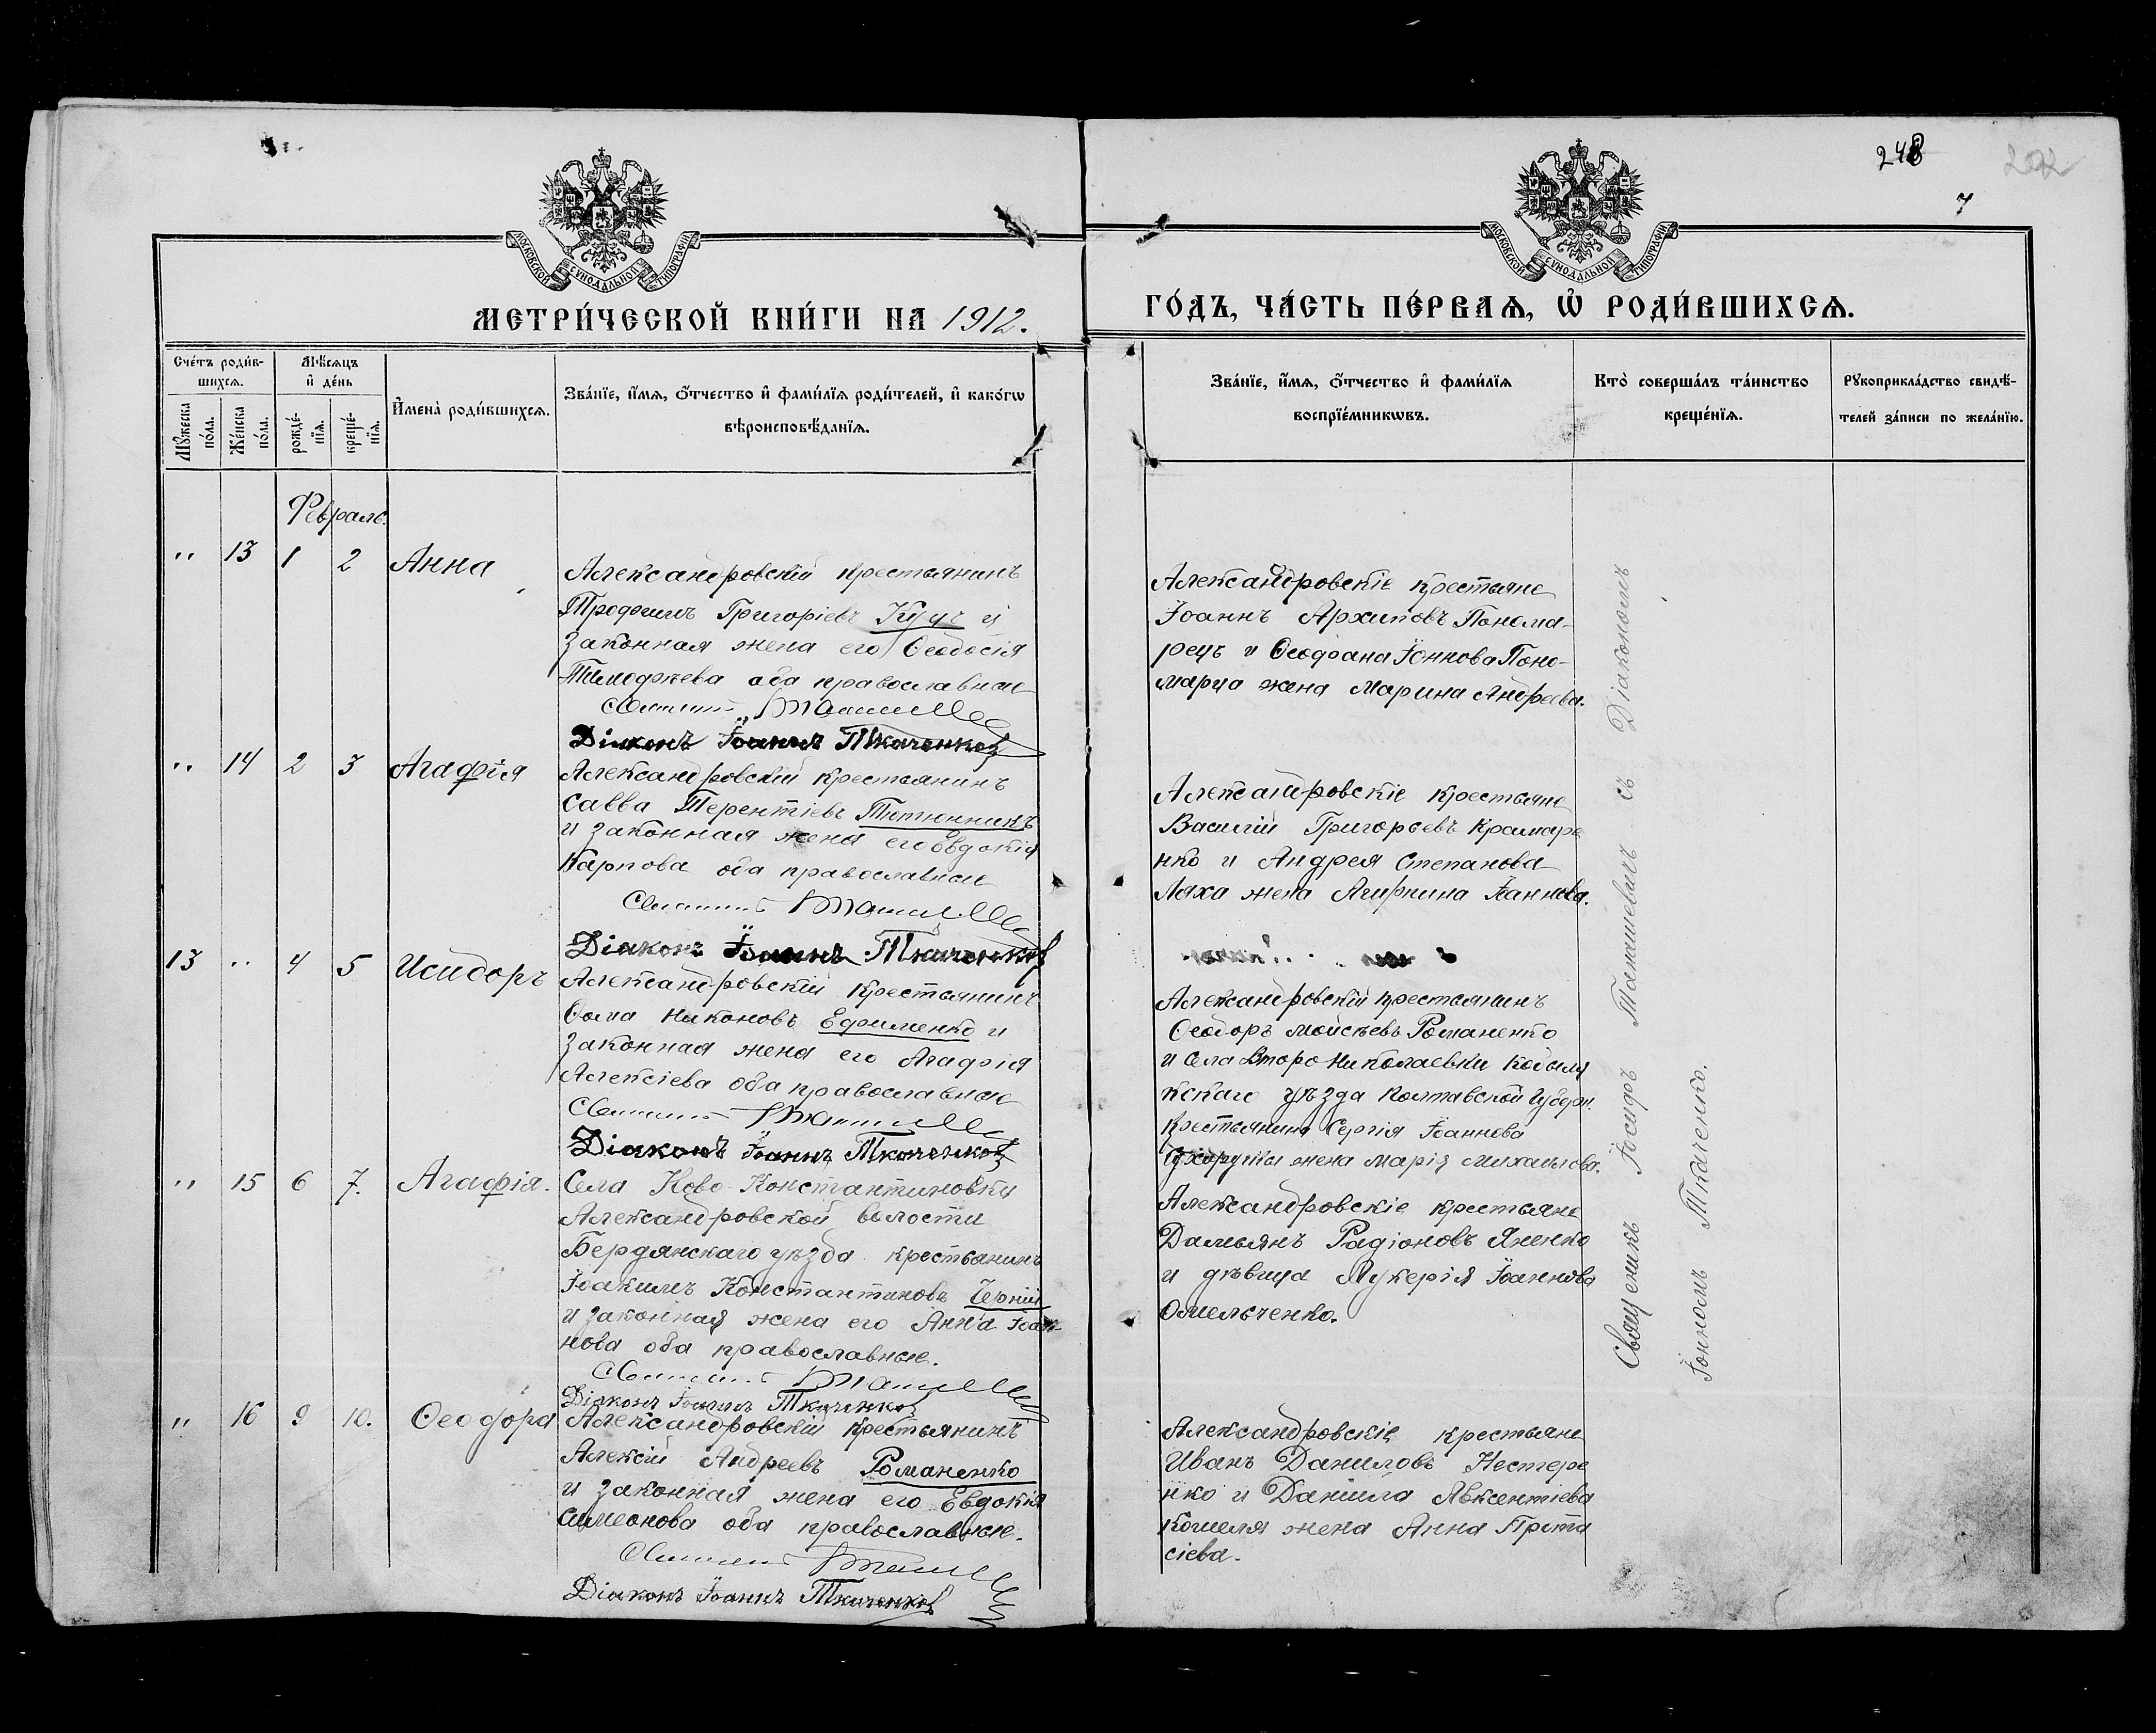 248
7
МОСКОВСКОЙ СѴНОДАЛЬНОЙ ТИПОГРАФІИ
МОСКОВСКОЙ СѴНОДАЛЬНОЙ ТИПОГРАФІИ
МЕТРИ́ЧЕСКОЙ КНИ́ГИ НА 1912.
ГО́ДЪ, ЧА́СТЬ ПЕ́РВАѦ, Ѽ РОДИ́ВШИХСѦ.
Сче́тъ роди́в-
шихсѧ.
Мѣ́сѧцъ
и҆ де́нь
Мꙋ́жеска по́ла.
Же́нска по́ла.
рожде́-
нїѧ.
креще́-
нїѧ.
И҆мена̀ роди́вшихсѧ.
Зва́нїе, и҆́мѧ, ѻ҆́тчество и҆ фами́лїѧ роди́телей, и҆ како́гѡ
вѣроисповѣ́данїѧ.
Зва́нїе, и҆́мѧ, ѻ҆́тчество и҆ фами́лїѧ
воспрїе́мникѡвъ.
Кто̀ соверша́лъ та́инство
креще́нїѧ.
Рꙋкоприкла́дство свидѣ́-
телей за́писи по жела́нїю.
Февраль.
,, 13 1 2 Анна
Александровскій крестьянинъ
Трофимъ Григоріевъ Куцъ и
законная жена его Ѳеодосія
Тимофѣева оба православные
Діаконъ Іоаннъ Ткаченко
Александровскіе крестьяне
Іоаннъ Архиповъ Понома-
рецъ и Ѳеофана Іоннова Поно-
марца жена Марина Андреева.
,, 14 2 3 Агафія
Александровскій крестьянинъ
Савва Терентіевъ Тютюнникъ
и законная жена его Овдокія
Карпова оба православные
Діаконъ Іоаннъ Ткаченко
Александровскіе крестьяне
Василій Григорьевъ Крамаре
нко и Андрея Степанова
Ляха жена Агрипина Іаннова.
13 ,, 4 5 Исидоръ
Александровскій крестьянинъ
Ѳома Никоновъ Ефименко и
законная жена его Агафія
Алексіева оба православные
Діаконъ Іоаннъ Ткаченко
Александровскій крестьянинъ
Ѳеодоръ Мойсѣевъ Романенко
и села Второ Николаевки Кобыля
кскаго уѣзда Полтавской Губерн.
крестьянина Сергія Іоаннова
жена Марія Михаилова.
,, 15 6 7. Агафія.
Села Ново-Константиновки
Александровской волости
Бердянскаго уѣзда крестьянинъ
Іоакимъ Константиновъ Черній
и законная жена его Анна Іоан
нова оба православные.
Діаконъ Іоаннъ Ткаченко
Александровскіе крестьяне
Дамьянъ Радіоновъ Яненко
и дѣвица Лукерія Іоаннова
Омельченко.
,, 16 9 10. Ѳеодора
Александровскій крестьянинъ
Алексій Андреевъ Романенко
и законная жена его Евдокія
Симеонова оба православные.
Діаконъ Іоаннъ Ткаченко
Александровскіе крестьяне
Иванъ Даниловъ Нестере
нко и Даніила Авксентіева
Кошеля жена Анна Прота
сіева.
Священникъ Іосифъ Таташевичъ съ Діакономъ
Іоанномъ Ткаченко.